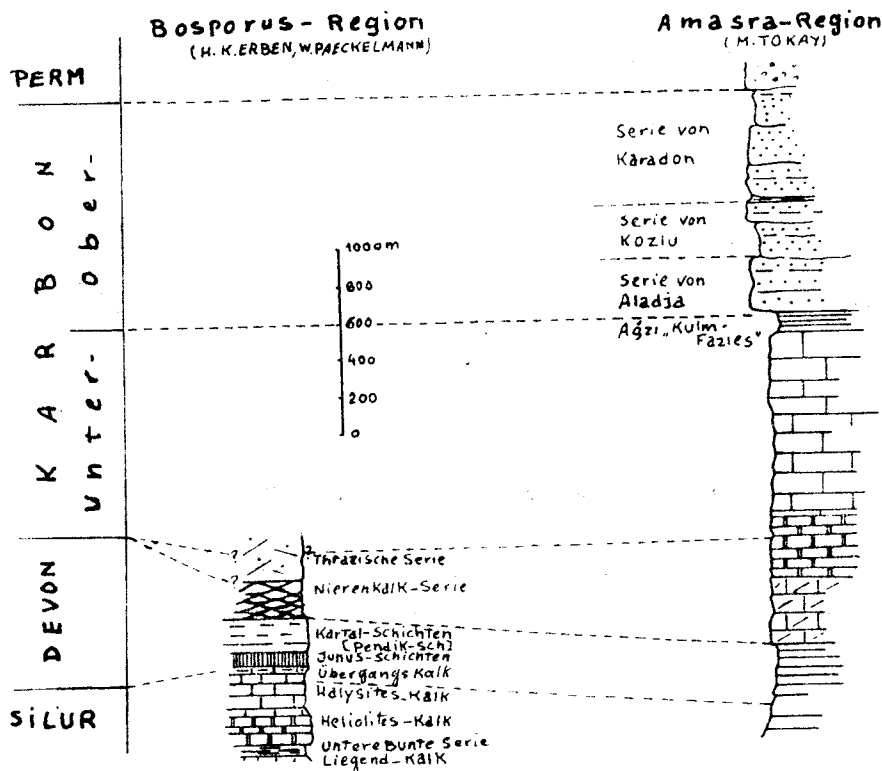 Bosporus-Region
(H.K.ERBEN,W.PAECKELMANN)
Amasra-Region
(M.TOKAY)
PERM
KARBON
Ober-
Unter-
DEVON
SİLUR
1000m
800
600
400
200
0
Serie von
Karadon
Serie von
Kozlu
Serie von
Aladja
Ağzı „Kulm-
Fazies"
?
?
?
Thrazische Serie
Nierenkalk-Serie
Kartal-Schichten
[Pendik-Sch]
Junus-Schichten
Übergangs Kalk
Halysites-Kalk
Heliolites-Kalk
Untere Bunte Serie
Liegend-Kalk